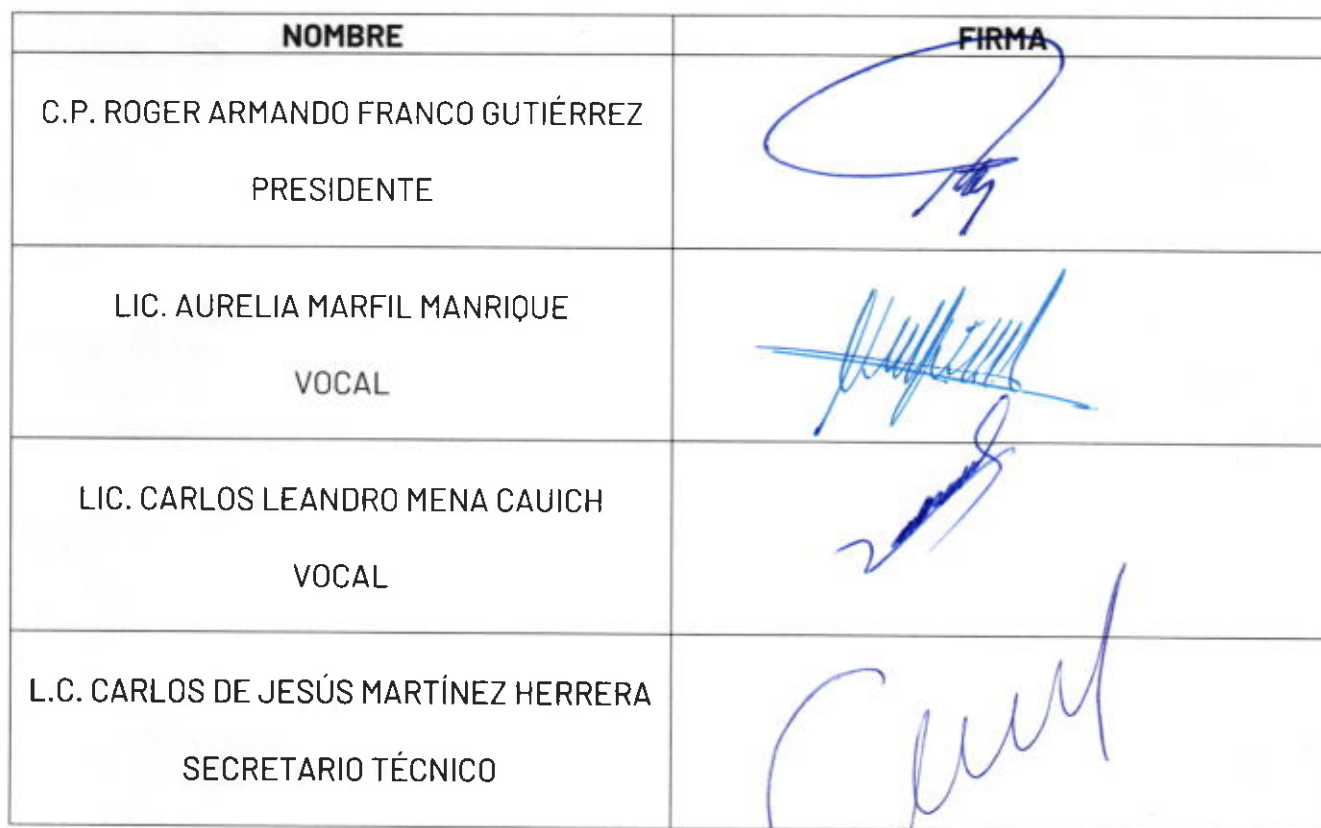 NOMBRE
FIRMA
C.P. ROGER ARMANDO FRANCO GUTIÉRREZ
PRESIDENTE
LIC. AURELIA MARFIL MANRIQUE
VOCAL
LIC. CARLOS LEANDRO MENA CAUICH
VOCAL
L.C. CARLOS DE JESÚS MARTÍNEZ HERRERA
SECRETARIO TÉCNICO